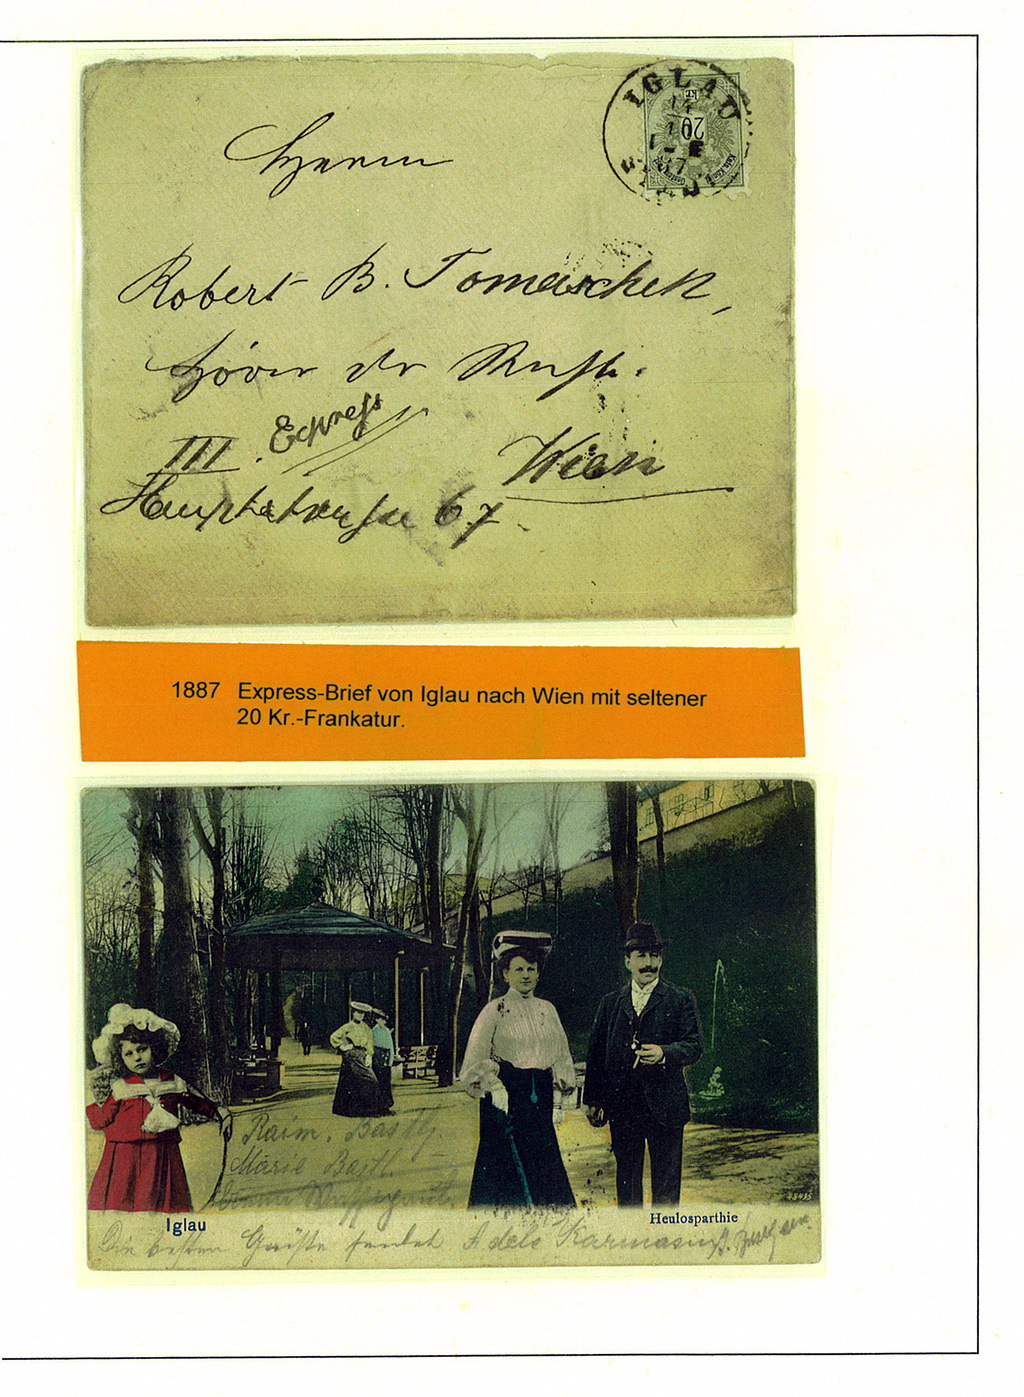 IGLAU
STADT
20
Kr.
Herrn
Robert B. Tomaschek,
Hörer der Rechte.
III. Express
Wien
Hauptstrasse 67
1887 Express-Brief von Iglau nach Wien mit seltener
20 Kr.-Frankatur.
Raim.
Marie
Iglau
Heulosparthie
Die besten Grüße sendet Adele Karmasin